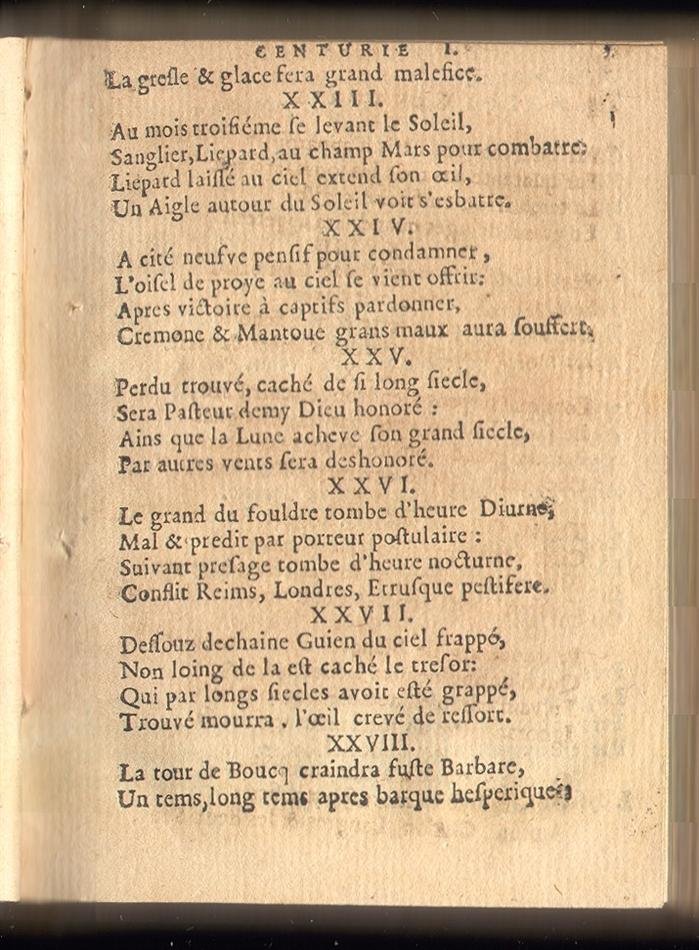 CENTURIE I.
La gresle & glace fera grand malefice.
XXIII.
Au mois troisiéme se levant le Soleil,
Sanglier, Liepard, au champ Mars pour combatre:
Liepard laissé au ciel extend son œil,
Un Aigle autour du Soleil voit s'esbatre.
XXIV.
A cité neufve pensif pour condamner,
L'oisel de proye au ciel se vient offrir:
Apres victoire à captifs pardonner,
Cremone & Mantoue grans maux aura souffert,
XXV.
Perdu trouvé, caché de si long siecle,
Sera Pasteur demy Dieu honoré :
Ains que la Lune acheve son grand siecle,
Par autres vents sera deshonoré.
XXVI.
Le grand du fouldre tombe d'heure Diurne,
Mal & predit par porteur postulaire :
Suivant presage tombe d'heure nocturne,
Conflit Reims, Londres, Etrusque pestifere.
XXVII.
Dessouz dechaine Guien du ciel frappé,
Non loing de la est caché le tresor:
Qui par longs siecles avoit esté grappé,
Trouvé mourra, l'œil crevé de ressort.
XXVIII.
La tour de Boucq craindra fuste Barbare,
Un tems, long tems apres barque hesperique: